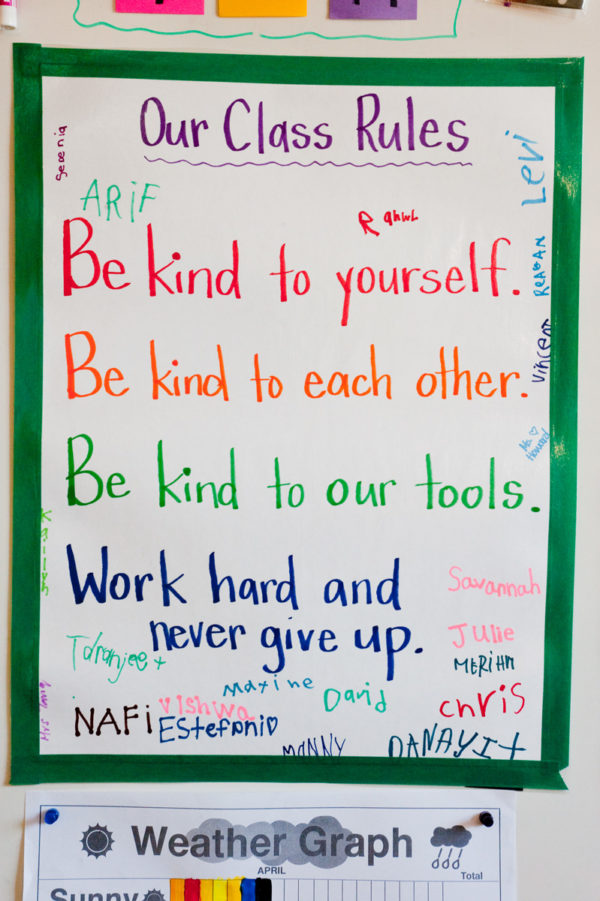 Our Class Rules
Levi
ARiF
Rahul
Be kind to yourself.
REAGAN
Be kind to each other.
Vincent
Ms. Howard
Be kind to our tools.
Work hard and
never give up.
Savannah
Julie
Taranjeet
MERiHM
Maxine
David
Chris
Vishwa
NAFi
EStefani
MANNY
DANAYIt
Weather Graph
APRIL
Total
Sunny